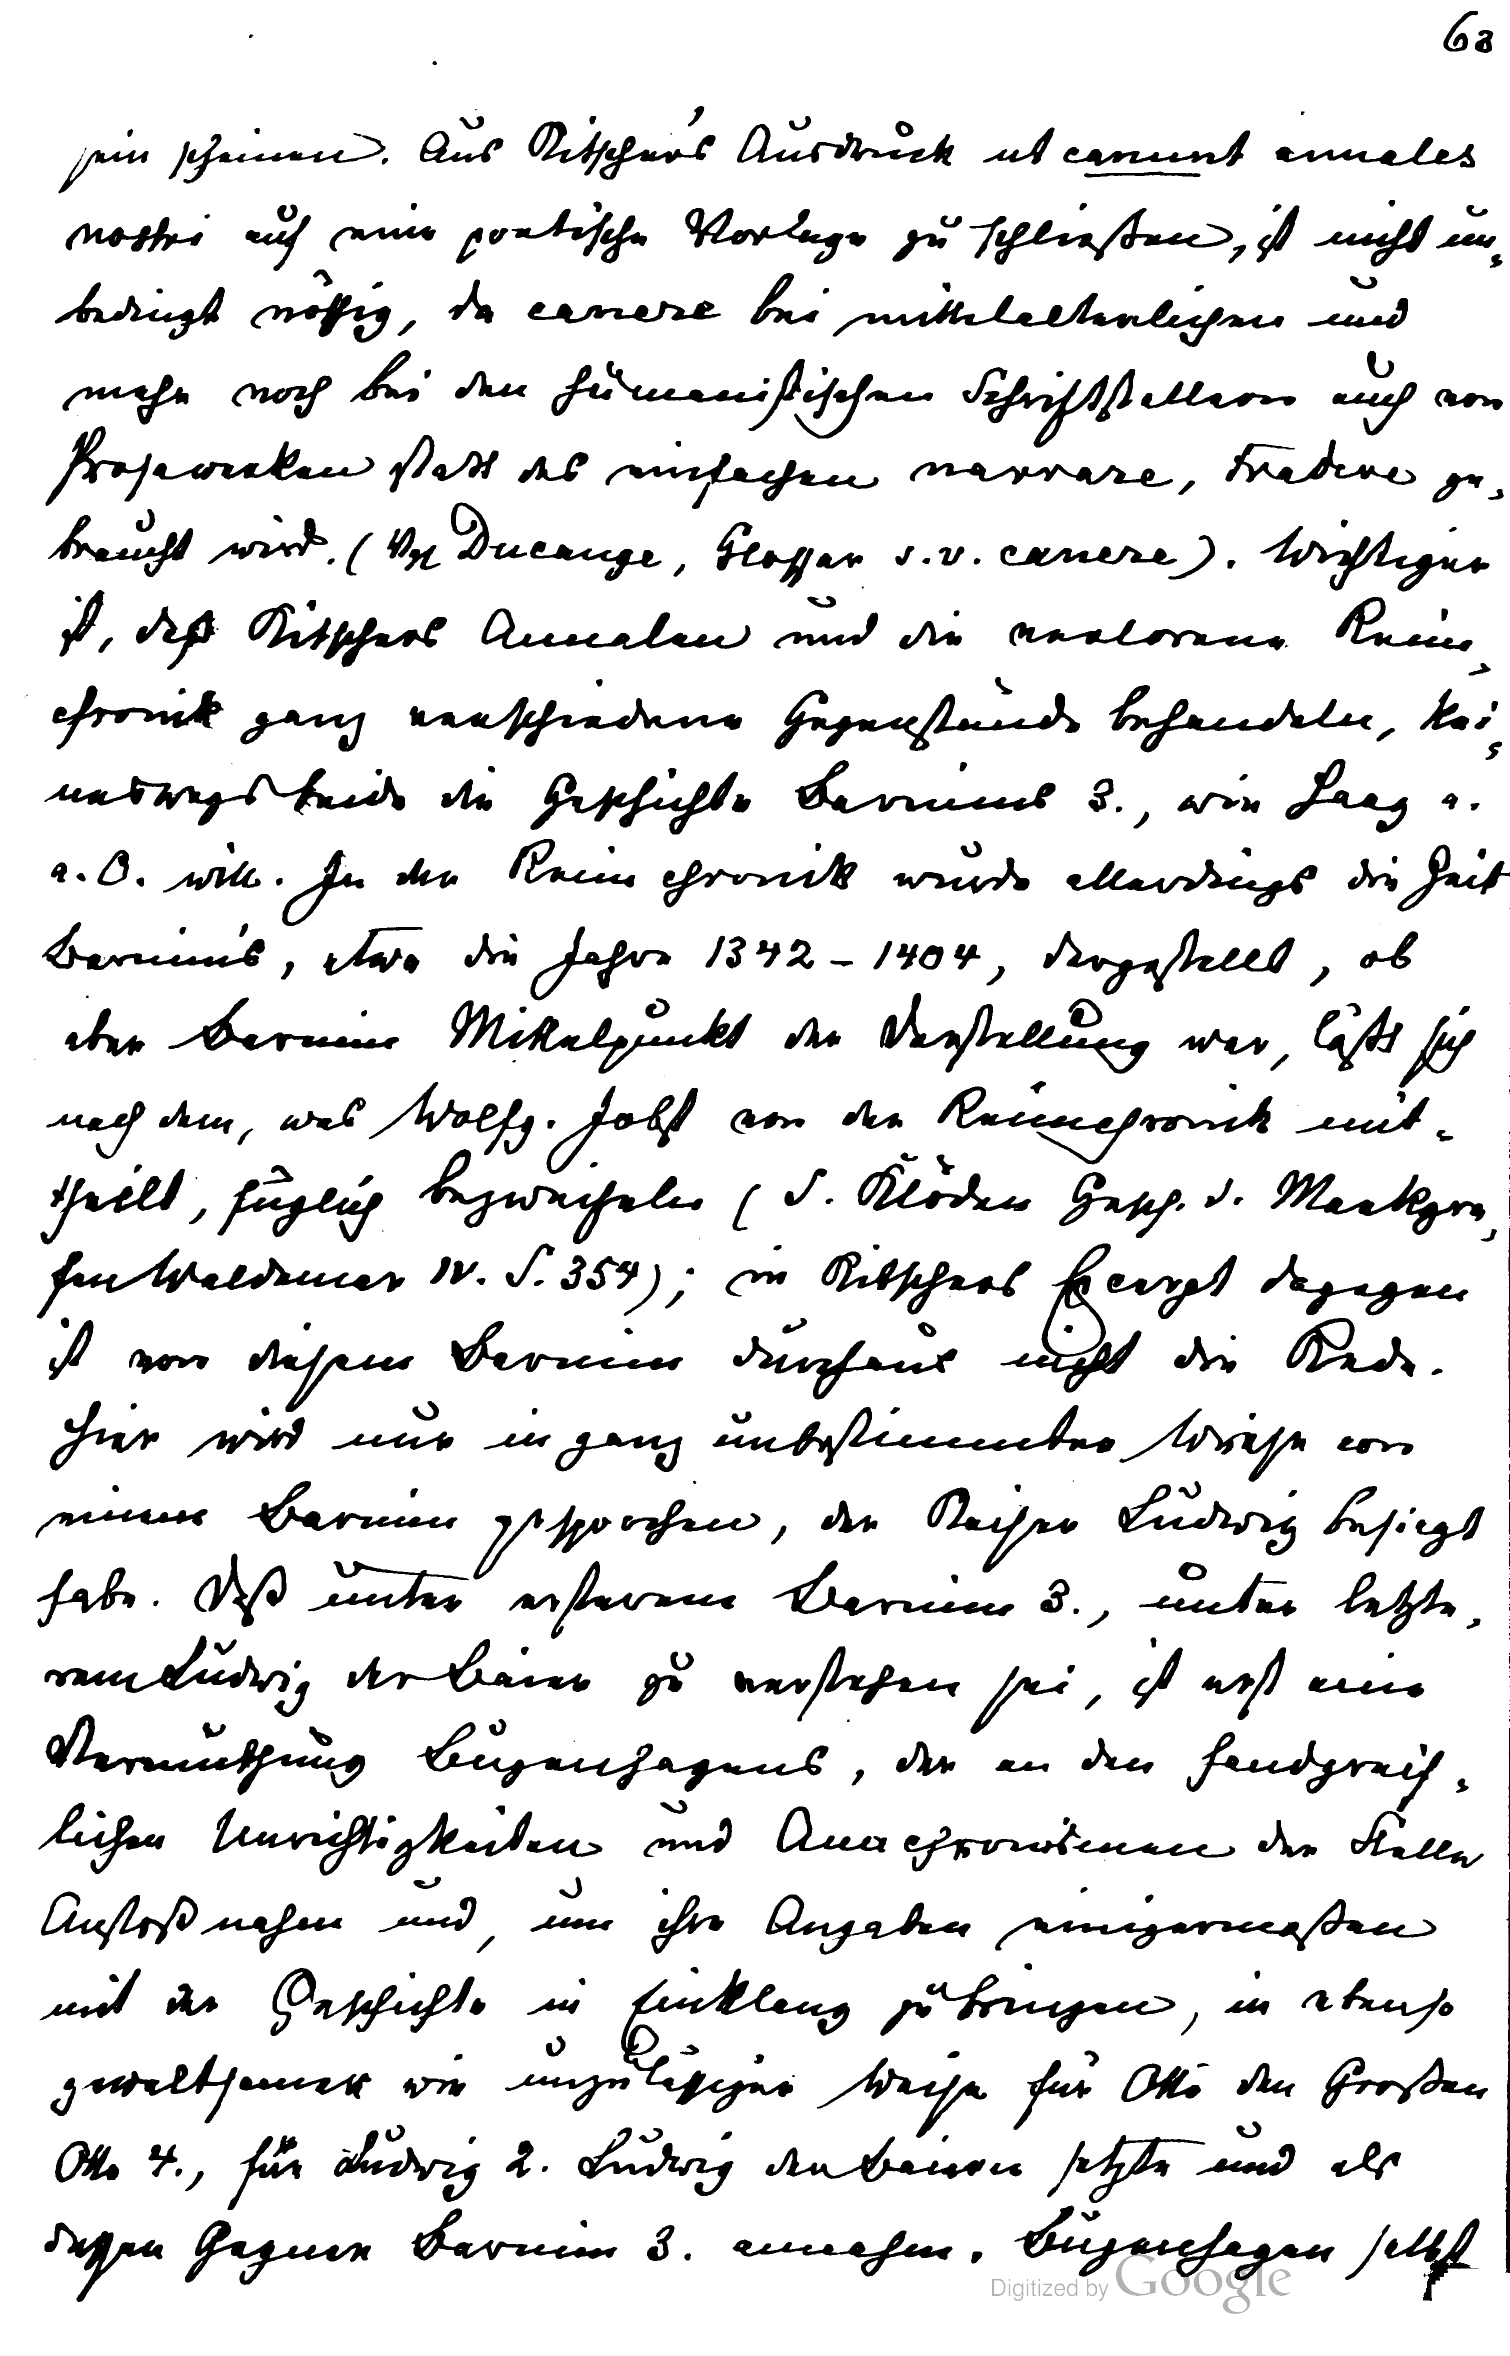 63
sein scheinen. Aus Kitscher's Ausdruck ut canunt annales
nostri auf eine poetische Vorlage zu schließen, ist nicht un-
bedingt nöthig, da canere bei mittelalterlichen und
mehr noch bei den humanistischen Schriftstellern auch von
Prosawerken statt des einfachen narrare, tradere ge-
braucht wird. (Vgl Ducange, Glossar s. v. canere). Wichtiger
ist, daß Kitschers Annalen und die verlorene Reim-
chronik ganz verschiedene Gegenstände behandeln, kei-
neswegs beide die Geschichte Barnims 3., wie Haag a.
a. O. will. In der Reimchronik wurde allerdings die Zeit
Barnim's, etwa die Jahre 1342 - 1404, dargestellt, ob
aber Barnim Mittelpunkt der Darstellung war, läßt sich
nach dem, was Wolfg. Jobst von der Reimchronik mit-
theilt, füglich bezweifeln (S. Klöden Gesch. d. Markgra-
fen Waldemar IV. S. 354); in Kitschers Excerpt dagegen
ist von diesem Barnim durchaus nicht die Rede.
Hier wird nur in ganz unbestimmter Weise von
einem Barnim gesprochen, der Kaiser Ludwig besiegt
habe. Daß unter ersterem Barnim 3., unter letzte-
rem Ludwig der Baier zu verstehen sei, ist erst eine
Vermuthung Bugenhagens, der an den handgreif-
lichen Unrichtigkeiten und Anachronismen der Stelle
Anstoß nahm und, um ihre Angaben einigermaßen
mit der Geschichte in Einklang zu bringen, in ebenso
gewaltsamer wie unzulässiger Weise für Otto den Großen
Otto 4., für Ludwig 2. Ludwig den Baiern setzte und als
dessen Gegner Barnim 3. annahm. Bugenhagen selbst
Digitized by Google